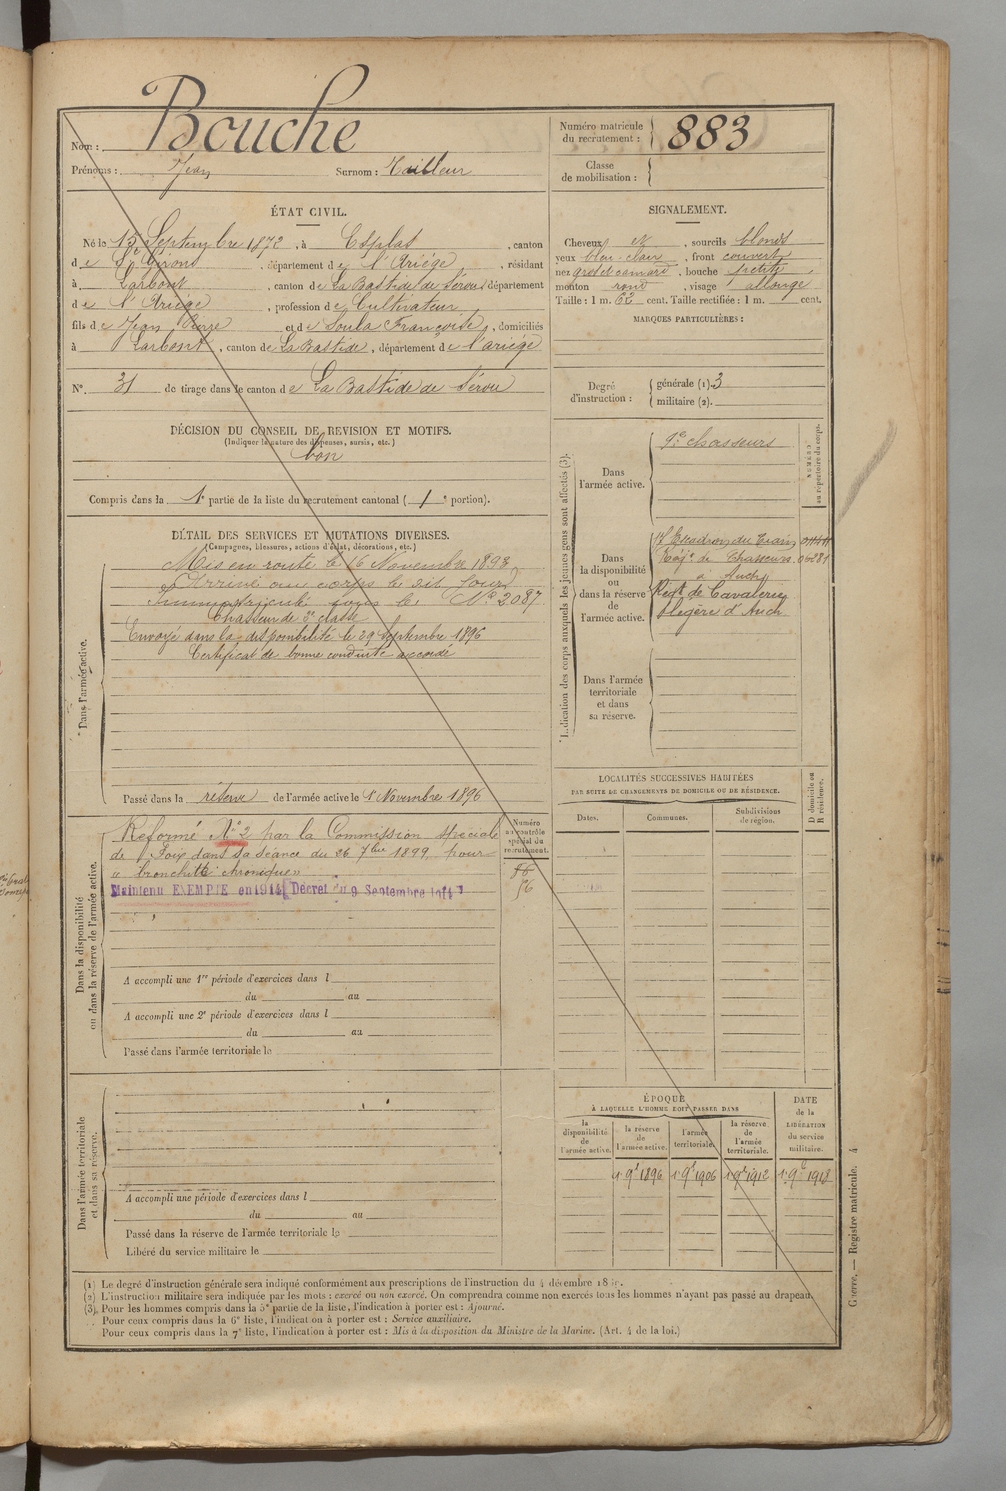 Nom : Bouche
Prénoms : Jean Surnom : Tailleur
Numéro matricule du recrutement : 883
Classe de mobilisation :
ÉTAT CIVIL.
Né le 15 Septembre 1872, à Esplas, canton
de St Girons, département de l'Ariége, résidant
à Larbont, canton de La Bastide de Sérou, département
de l'Ariége, profession de Cultivateur
fils de Jean Pierre et de Soula Françoise, domiciliés
à Larbont, canton de La Bastide, département de l'ariége
N° 31 de tirage dans le canton de La Bastide de Sérou
SIGNALEMENT.
Cheveux et, sourcils blonds
yeux bleu-clair, front couvert
nez gros et camard, bouche petite,
menton rond, visage allongé
Taille : 1 m. 62 cent. Taille rectifiée : 1 m. cent.
MARQUES PARTICULIÈRES :
Degré d'instruction : générale (1). 3
militaire (2).
DÉCISION DU CONSEIL DE REVISION ET MOTIFS.
(Indiquer la nature des dispenses, sursis, etc.)
bon
Compris dans la 1e partie de la liste du recrutement cantonal ( 1e portion).
DÉTAIL DES SERVICES ET MUTATIONS DIVERSES.
(Campagnes, blessures, actions d'éclat, décorations, etc.)
Dans l'armée active.
Mis en route le 16 Novembre 1893
Arrivé au corps le dit jour
Immatriculé sous le N° 2087
Chasseur de 2e classe
Envoyé dans la disponibilité le 29 Septembre 1896
Certificat de bonne conduite accordé
Passé dans la réserve de l'armée active le 1 Novembre 1896
Indication des corps auxquels les jeunes gens sont affectés (3).
NUMÉRO au répertoire du corps.
Dans l'armée active.
9e chasseurs
Dans la disponibilité ou dans la réserve de l'armée active.
Escadron du Train
Régt de Chasseurs
à Auch
Regt de Cavalerie
légère d'Auch
Dans l'armée territoriale et dans sa réserve.
LOCALITÉS SUCCESSIVES HABITÉES
PAR SUITE DE CHANGEMENTS DE DOMICILE OU DE RÉSIDENCE.
Dates. Communes. Subdivisions de région. D domicile ou R résidence.
Dans la disponibilité ou dans la réserve de l'armée active.
Numéro au contrôle spécial du recrutement.
Réformé N° 2 par la Commission spéciale
de Foix dans sa séance du 26 7bre 1899, pour
« bronchite chronique »
Maintenu EXEMPTE en 1914 Décret du 9 Septembre 1914
56
A accompli une 1re période d'exercices dans l
du au
A accompli une 2e période d'exercices dans l
du au
Passé dans l'armée territoriale le
Dans l'armée territoriale et dans sa réserve.
A accompli une période d'exercices dans l
du au
Passé dans la réserve de l'armée territoriale le
Libéré du service militaire le
ÉPOQUE
À LAQUELLE L'HOMME DOIT PASSER DANS
la disponibilité de l'armée active. la réserve de l'armée active. l'armée territoriale. la réserve de l'armée territoriale.
DATE de la LIBÉRATION du service militaire.
1 9e 1896 1 9e 1906 1 9e 1912 1 9e 1918
(1) Le degré d'instruction générale sera indiqué conformément aux prescriptions de l'instruction du 4 décembre
(2) L'instruction militaire sera indiquée par les mots : exercé ou non exercé. On comprendra comme non exercés tous les hommes n'ayant pas passé au drapeau.
(3) Pour les hommes compris dans la 5e partie de la liste, l'indication à porter est : Ajourné.
Pour ceux compris dans la 6e liste, l'indication à porter est : Service auxiliaire.
Pour ceux compris dans la 7e liste, l'indication à porter est : Mis à la disposition du Ministre de la Marine. (Art. 4 de la loi.)
Guerre. — Registre matricule. 4